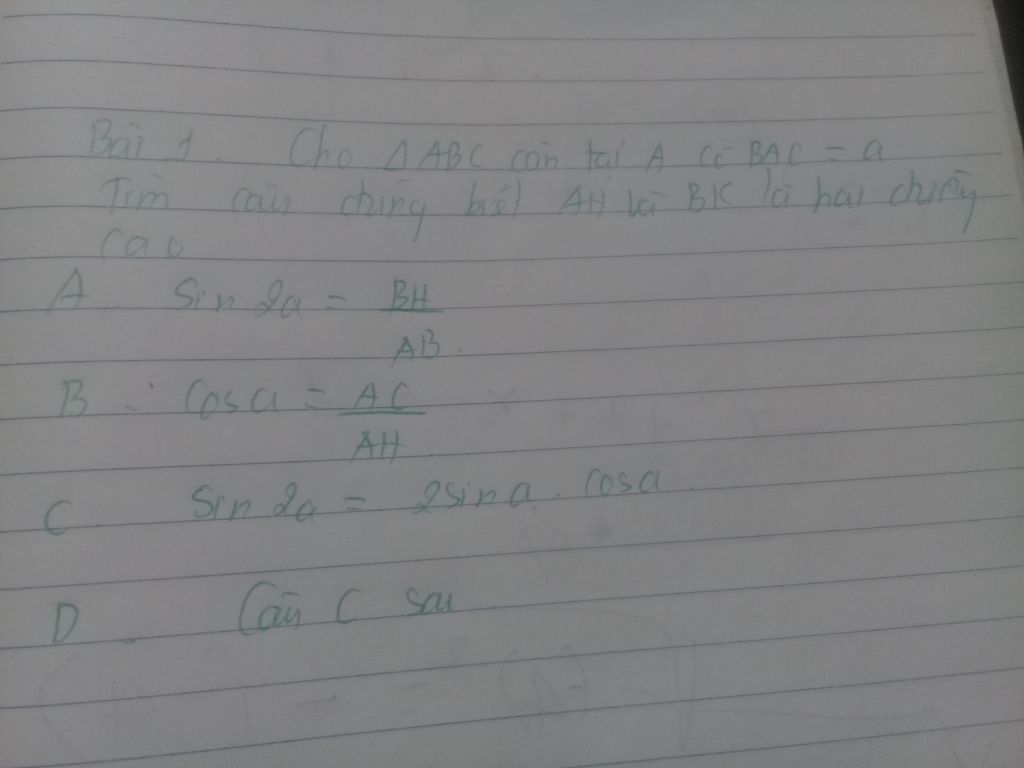 Bài 1. Cho ΔABC cân tại A có BAC = a
Tìm câu đúng biết AH và BK là hai đường
cao
A sin 2a = BH/AB.
B. cosa = AC/AH
C sin 2a = 2sina. cosa
D. Câu C sai